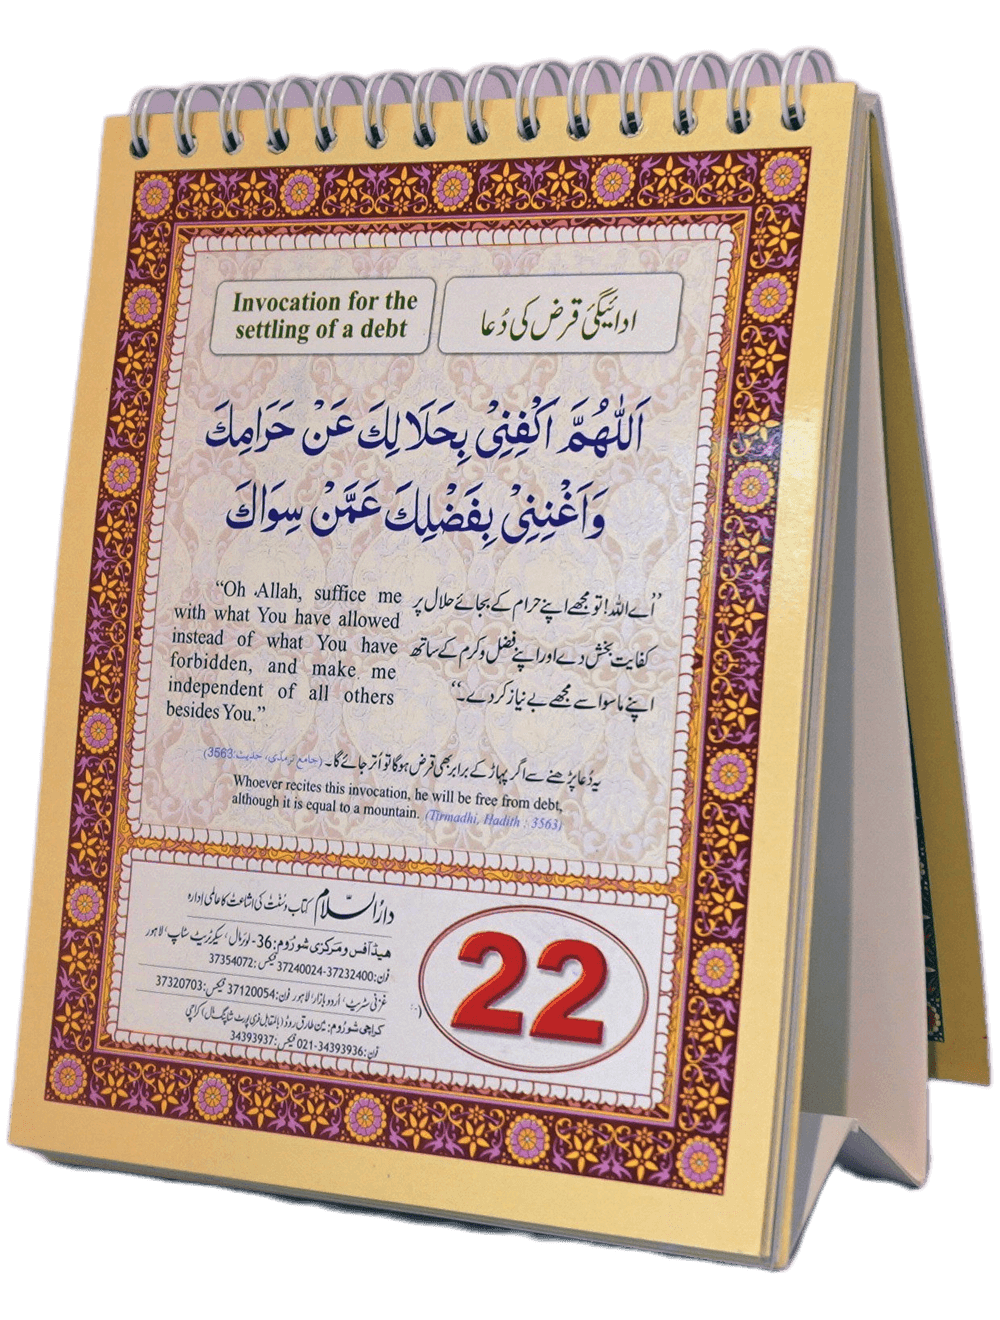 Invocation for the
settling of a debt
ادائیگیٔ قرض کی دُعا
اَللّٰهُمَّ اكْفِنِيْ بِحَلَالِكَ عَنْ حَرَامِكَ
وَاَغْنِنِيْ بِفَضْلِكَ عَمَّنْ سِوَاكَ
“Oh Allah, suffice me
with what You have allowed
instead of what You have
forbidden, and make me
independent of all others
besides You.”
”اے اللہ! تو مجھے اپنے حرام کے بجائے حلال پر
کفایت بخش دے اور اپنے فضل و کرم کے ساتھ
اپنے ماسوا سے مجھے بے نیاز کر دے۔“
یہ دُعا پڑھنے سے اگر پہاڑ کے برابر بھی قرض ہوگا تو اُتر جائے گا۔ (جامع ترمذی، حدیث:3563)
Whoever recites this invocation, he will be free from debt,
although it is equal to a mountain. (Tirmadhi, Hadith : 3563)
دارُالسّلام کتاب و سُنّت کی اشاعت کا عالمی ادارہ
ھیڈ آفس و مرکزی شو رُوم: 36- لوئر مال، سیکرٹریٹ سٹاپ، لاہور
فون: 37240024-37232400 فیکس: 37354072
غزنی سٹریٹ، اُردو بازار لاہور فون: 37120054 فیکس: 37320703
کراچی شو رُوم: مین طارق روڈ (بالمقابل فری پورٹ شاپنگ مال) کراچی
فون: 021-34393936 فیکس: 34393937
22